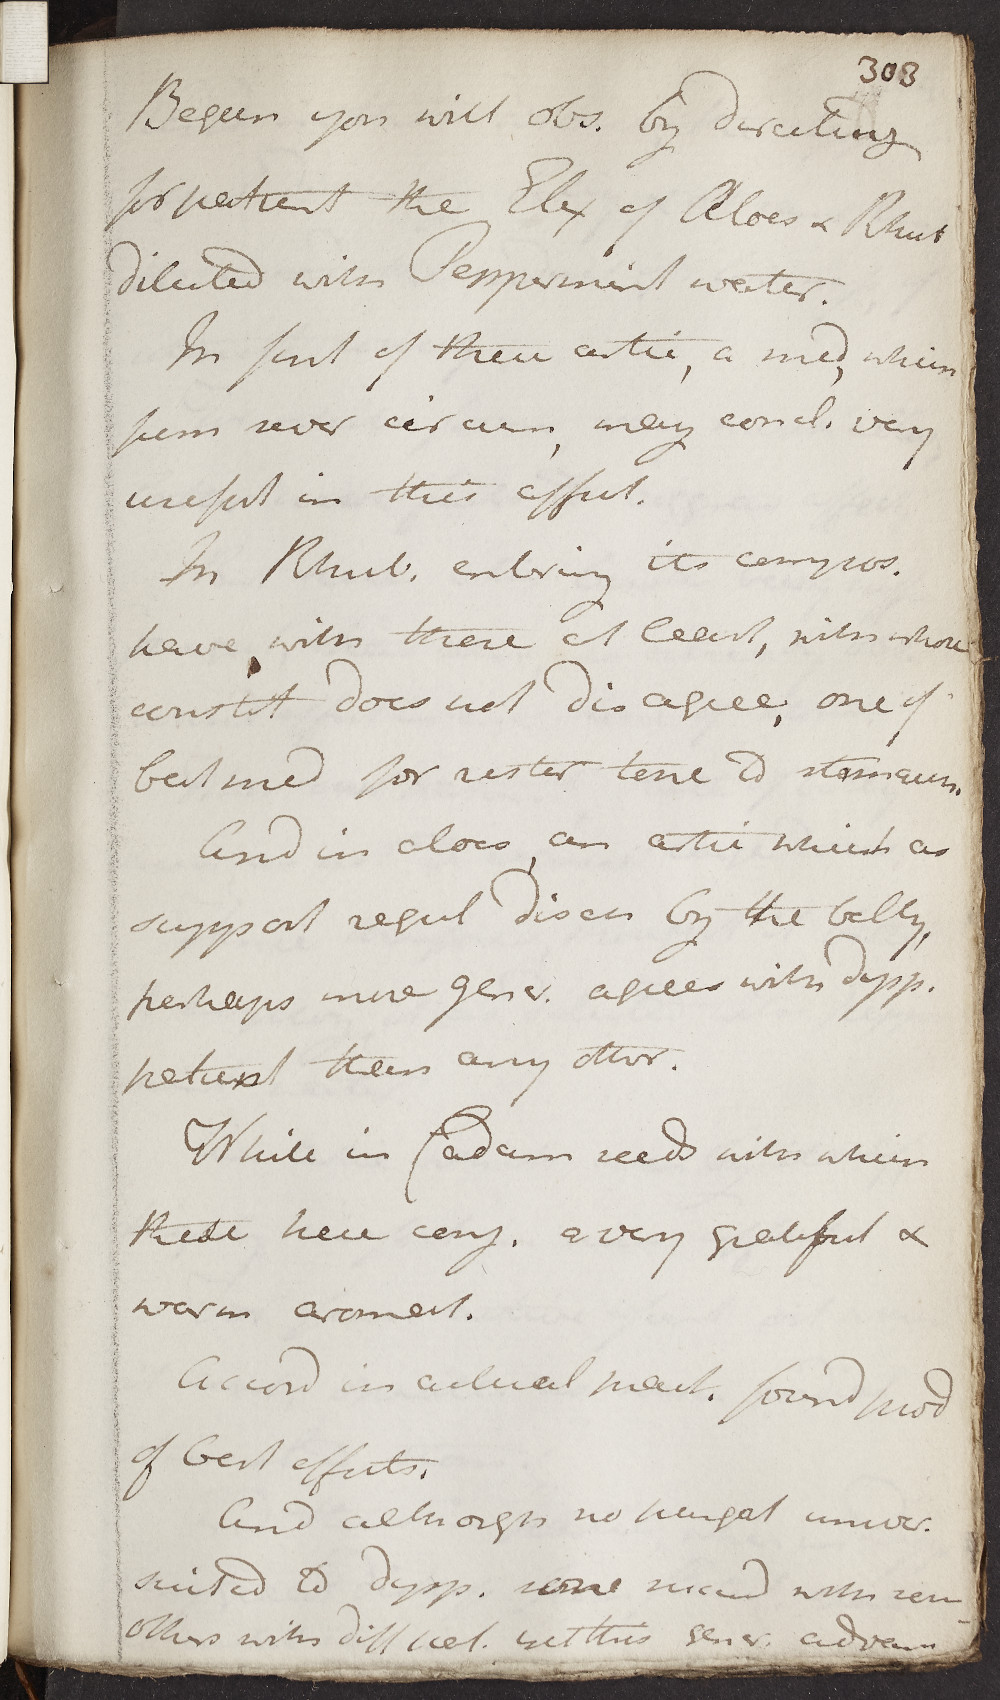 303
Begun you will obs. by directing
for patient the Elix of Aloes & Rhub
diluted with Peppermint water.
In first of these artic, a med, which
from sever circum, may concl. very
useful in this affect.
In Rhub. entering its compos.
have, with these at least, with whose
constit does not disagree, one of
best med for restor tone to stomach.
And in aloes, an artic which as
support regul disch by the belly,
perhaps more gener. agrees with dysp.
patient than any other.
While in Cadam seeds with which
these here conj. a very grateful &
warm aromat.
Accord in actual pract. found prod
of best effects.
And although no purgat univer.
suited to dysp. some succeed with some
others with diff pat. yet this gener. advan